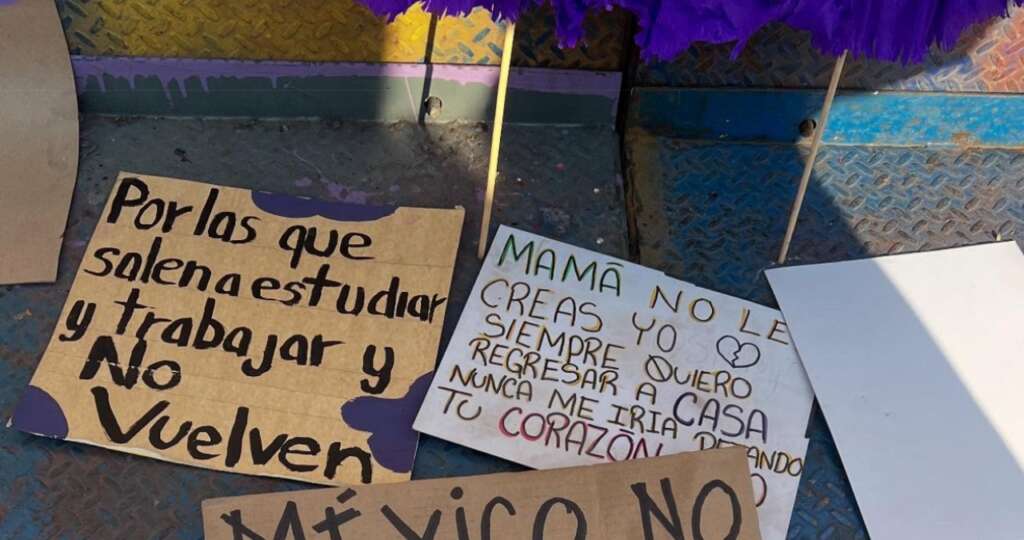 Por las que
salen a estudiar
y trabajar y
No
Vuelven
MAMÁ NO LE
CREAS YO
SIEMPRE QUIERO
REGRESAR A CASA
NUNCA ME IRIA
TU CORAZÓN
MÉXICO NO